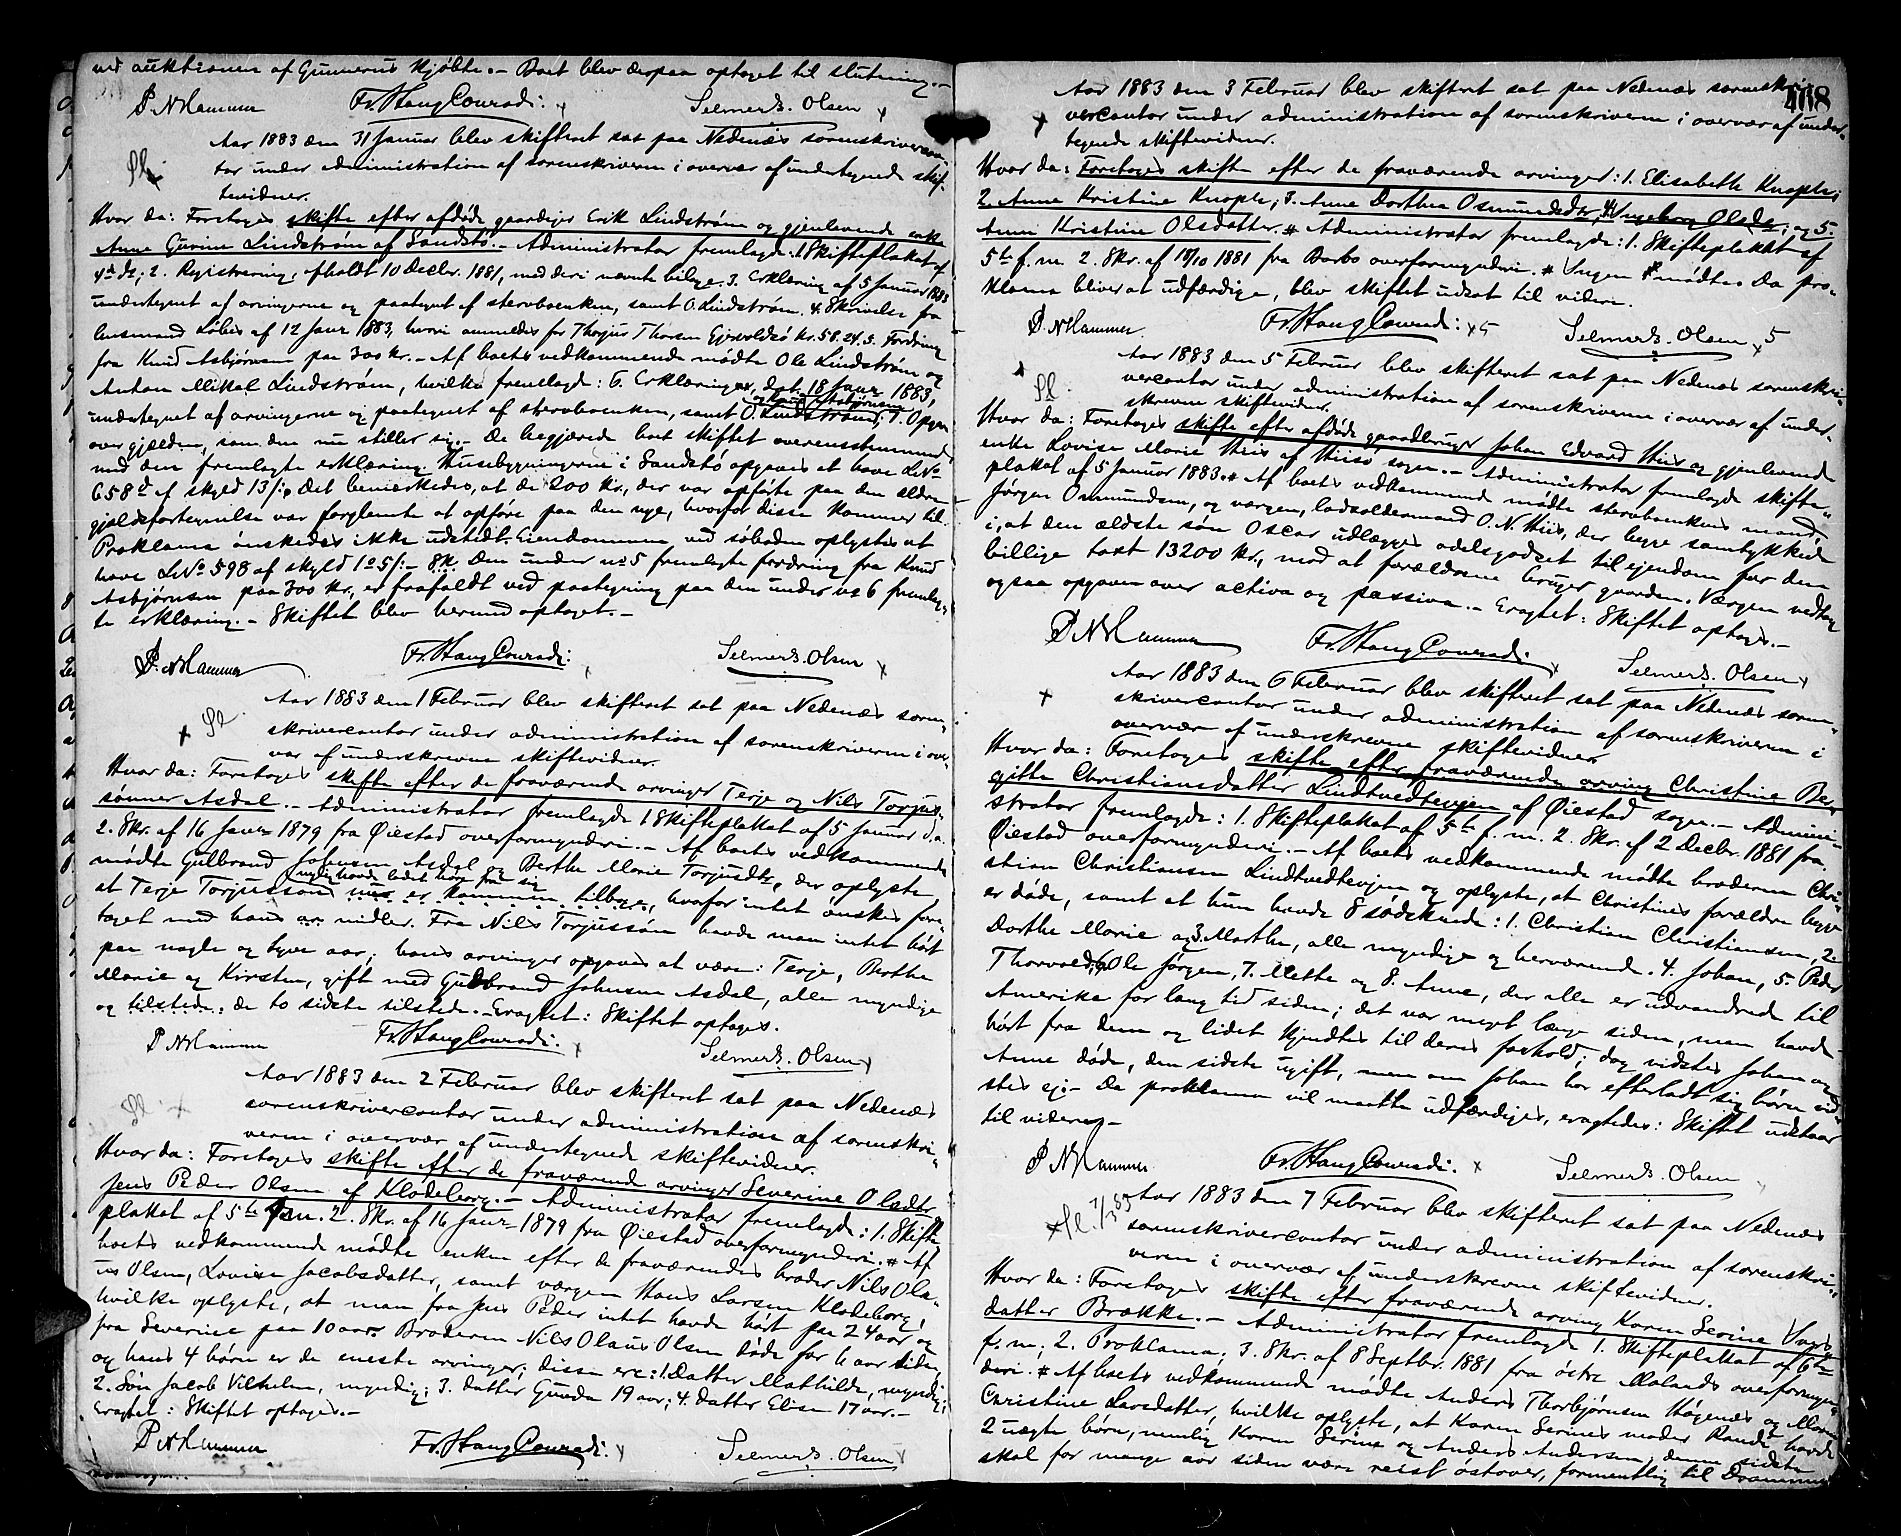 ved auktionen af Gunnerus Kjøbte. – Boet blev derpaa optaget til slutning. –
P. N Hammer Fr. Haug Conradi. Selmer S. Olsen
Aar 1883 den 31 Januar blev skifteret sat paa Nedenæs sorenskrivercon-
tor under administration af sorenskriveren i overvær af undertegnede skif-
tevidner.
Hvor da: Foretoges skifte efter afdøde gaardejer Erik Lindstrøm og gjenlevende enke
Anne Gurine Lindstrøm af Sandstø. – Administrator fremlagde: 1. Skifteplakat af
4de ds; 2. Registrering, afholdt 10 Decbr. 1881, med deri nævnte bilage. 3. Erklæring af 5 Januar 1883
undertegnet af arvingerne og paategnet af stervboenken, samt O. Lindstrøm. 4. Skrivelse fra
lensmand af 12 Janr 1883, hvori anmeldes for Thorjus Thorsen kr. 58.24. 5. Fordring
fra Knud Asbjørnsen paa 300 kr. – Af boets vedkommende mødte Ole Lindstrøm og
Anton Mikal Lindstrøm, hvilke fremlagde: 6. Erklæring, dat. 18 Janr 1883,
og Knud Asbjørnsen
undertegnet af arvingerne og paategnet af stervboenken, samt O. Lindstrøm, 7. Opgave
over gjælden, som den nu stiller sig. – De begjærede boet skiftet overensstemmende
med den fremlagte erklæring. Husebygningerne i Sandstø opgaves at have L.No
658d af skyld 13 /: Det bemærkedes, at de 200 kr., der var opførte paa den ældre
gjældsfortegnelse var forglemte at opføre paa den nye, hvorfor disse kommer til.
Proklama ønskedes ikke udstedt. Eiendommen ved søboden oplystes at
have L.No 598 af skyld 1 o 5 /: – 8 k. Den under no 5 fremlagte fordring fra Knud
Asbjørnsen paa 300 kr., er frafaldt ved paategning paa den under no 6 fremlag-
te erklæring. – Skiftet blev herved optaget. –
P. N Hammer Fr. Haug Conradi. Selmer S. Olsen
Aar 1883 den 1 Februar blev skifteret sat paa Nedenæs soren-
skrivercontor under administration af sorenskriveren i over-
vær af underskrevne skiftevidner.
Hvor da: Foretoges skifte efter de fraværende arvinger Terje og Nils Torjus-
sønner Asdal. – Administrator fremlagde 1. Skifteplakat af 5 Januar d.a.
2. Skr. af 16 Janr 1879 fra Øiestad overformynderi. – Af boets vedkommende
mødte Gulbrand Johnsen Asdal og Berthe Marie Torjusdtr, der oplyste
nylig havde ladet høre fra sig
at Terje Torjussøn nu er kommen tilbage, hvorfor intet ønskes fore-
taget med hans midler. Fra Nils Torjussøn havde man intet hørt
paa nogle og tyve aar; hans arvinger opgaves at være: Terje, Berthe
Marie og Kirsten, gift med Gulbrand Johnsen Asdal, alle myndige
og tilstede, de to sidste tilstede. – Eragtet: Skiftet optages.
P. N Hammer Fr. Haug Conradi. Selmer S. Olsen
Aar 1883 den 2 Februar blev skifteret sat paa Nedenæs
sorenskrivercontor under administration af sorenskri-
veren i overvær af undertegnede skiftevidner.
Hvor da: Foretoges skifte efter de fraværende arvinger Severine Olsdtr
Jens Peder Olsen af Klodeborg. – Administrator fremlagde: 1. Skifte-
plakat af 5te f.m. 2. Skr. af 16 Janr 1879 fra Øiestad overformynderi. Af
boets vedkommende mødte enken efter de fraværendes broder Nils Ola-
us Olsen, Lovise Jacobsdatter, samt værgen Hans Larsen Klodeborg,
hvilke oplyste, at man fra Jens Peder intet havde hørt paa 24 aar og
fra Severine paa 10 aar. Broderen Nils Olaus Olsen døde for 6 aar siden,
og hans 4 børn er de eneste arvinger; disse ere: 1. Datter Mathilde, myndig;
2. Søn Jacob Vilhelm, myndig; 3. datter Gunda 19 aar; 4. datter Elise 17 aar. –
Eragtet: Skiftet optages. –
P. N Hammer Fr. Haug Conradi. Selmer S. Olsen
408
Aar 1883 den 3 Februar blev skifteret sat paa Nedenæs sorenskri-
vercontor under administration af sorenskriveren i overvær af under-
tegnede skiftevidner.
Hvor da: Foretoges skifte efter de fraværende arvinger: 1. Elisabeth Knople;
2. Anne Kristine Knople; 3. Anne Dorthea Osmundsdtr, 4. Ingeborg Olsdtr, og 5.
Anne Kristine Olsdatter. Administrator fremlagde: 1. Skifteplakat af
5te f.m. 2. Skr. af 18/10 1881 fra Barbo overformynderi. Ingen mødte. Da pro-
klama bliver at udfærdige, blev skiftet udsat til videre.
P. N Hammer Fr. Haug Conradi. Selmer S. Olsen
Aar 1883 den 5 Februar blev skifteret sat paa Nedenæs sorenskri-
vercontor under administration af sorenskriveren i overvær af under-
skrevne skiftevidner.
Hvor da: Foretoges skifte efter afdøde gaardbruger Johan Edvard His og gjenlevende
enke Lovise Marie His af Hisø sogn. – Administrator fremlagde skifte-
plakat af 5 Januar 1883. Af boets vedkommende mødte stervboenkens mand
Jørgen Osmundsen, og værgen, lodsoldermand O. N. His, der begge samtykked
i, at den ældste søn Oscar udlægges odelsgodset til ejendom for den
billige taxt 13200 kr., mod at forældrene bruger gaarden. Værgen vedtog
ogsaa opgaven over activa og passiva. – Eragtet: Skiftet optages. –
P. N Hammer Fr. Haug Conradi. Selmer S. Olsen
Aar 1883 den 6 Februar blev skifteret sat paa Nedenæs soren-
skrivercontor under administration af sorenskriveren i
overvær af underskrevne skiftevidner
Hvor da: Foretoges skifte efter fraværende arving Christine Ber-
gitte Christiansdatter Lindtvedtevjen af Øiestad sogn. – Admini-
strator fremlagde: 1. Skifteplakat af 5te f.m. 2. Skr. af 2 Decbr. 1881 fra
Øiestad overformynderi. – Af boets vedkommende mødte broderen Chri-
stian Christiansen Lindtvedtevjen og oplyste, at Christines forældre begge
er døde, samt at hun havde 8 sødskende: 1. Christian Christiansen, 2.
Dorthe Marie og 3. Marthe, alle myndige og herværende. 4. Johan, 5. Peder
Thorvald, 6. Ole Jørgen, 7. Mette og 8. Anne, der alle er udvandrede til
Amerika for lang tid siden; det var meget længe siden, man havde
hørt fra dem og lidet kjendtes til deres forhold; dog vidstes Johan og
Anne døde, den sidste ugift, men om Johan har efterladt sig børn vid-
stes ej. – Da proklama vil maatte udfærdiges, eragtedes: Skiftet udstaar
til videre. –
P. N Hammer Fr. Haug Conradi. Selmer S. Olsen
Aar 1883 den 7 Februar blev skifteret sat paa Nedenæs
sorenskrivercontor under administration af sorenskri-
veren i overvær af underskrevne skiftevidner.
Hvor da: Foretoges skifte efter fraværende arving Karen Serine Lars-
datter Brække. – Administrator fremlagde 1. Skifteplakat af 6te
f.m; 2. Proklama; 3. Skr. af 8 Septbr. 1881 fra østre Molands overformyn-
deri. Af boets vedkommende mødte Anders Thorbjørnsen Høgenæs og Maren
Christine Larsdatter, hvilke oplyste, at Karen Serines moder Randi havde
2 uægte børn, nemlig Karen Serine og Anders Andersen, denne sidste
skal for mange aar siden være reist østover, formentlig til Drammen